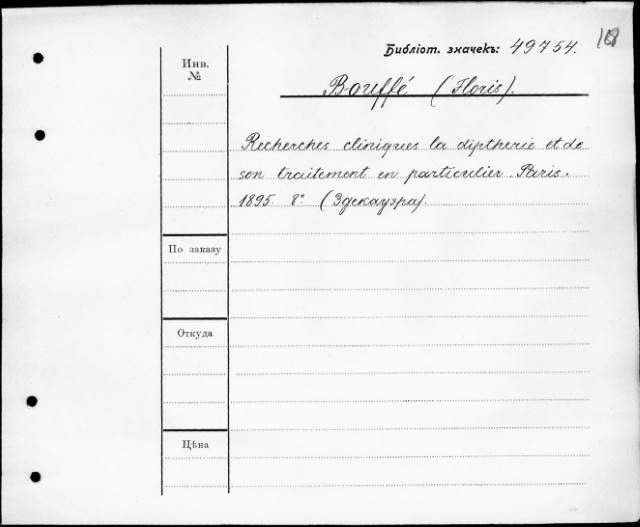 Библіот. значекъ: 49754.
Инв.
№
Bouffé (Floris).
Recherches cliniques la diptherie et de
son traitement en particulier. Paris.
1895. 8° (Здекауэра).
По заказу
Откуда
Цѣна